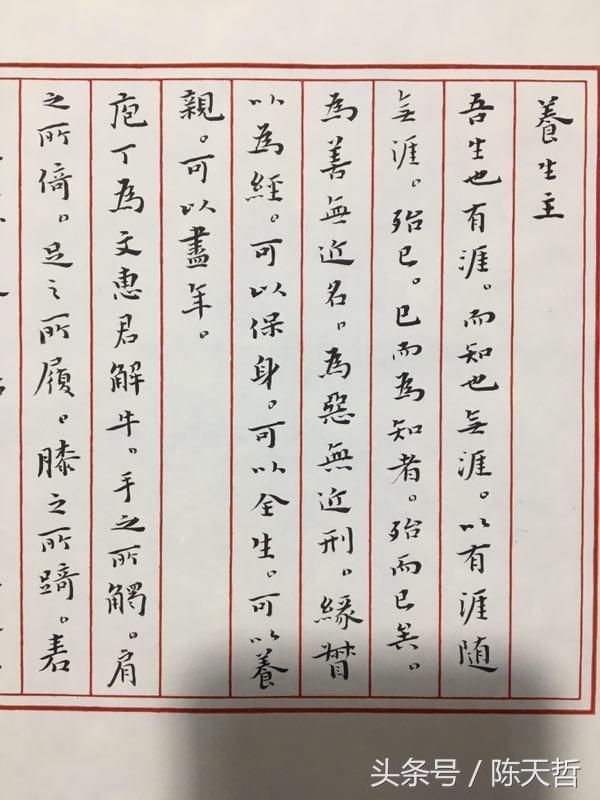 養生主
吾生也有涯。而知也无涯。以有涯随
无涯。殆已。已而為知者。殆而已矣。
為善無近名。為惡無近刑。緣督
以為經。可以保身。可以全生。可以養
親。可以盡年。
庖丁為文惠君解牛。手之所觸。肩
之所倚。足之所履。膝之所踦。砉
头条号 / 陈天哲